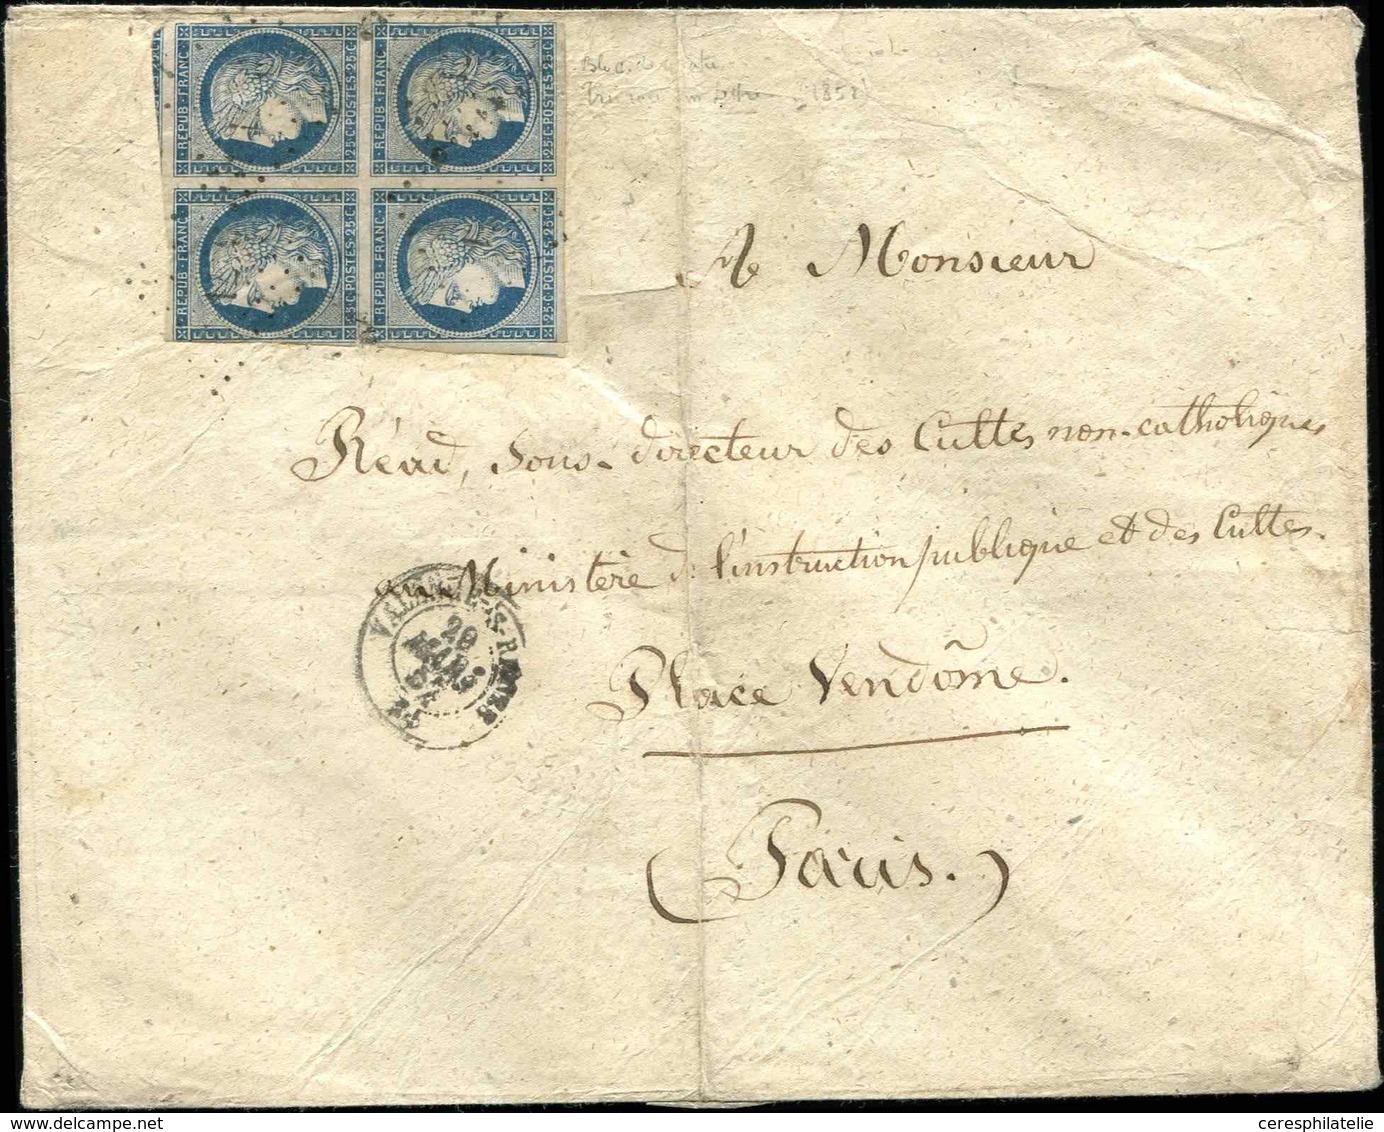 REPUB·FRANC·
25C·POSTES·25C
REPUB·FRANC·
25C·POSTES·25C
REPUB·FRANC·
25C·POSTES·25C
REPUB·FRANC·
25C·POSTES·25C
A Monsieur
Réad, Sous-directeur des Cultes non-catholiques
au Ministère de l'instruction publique et des Cultes.
Place Vendôme.
(Paris.)
MARS
54
© www.delcampe.net
ceresphilatelie